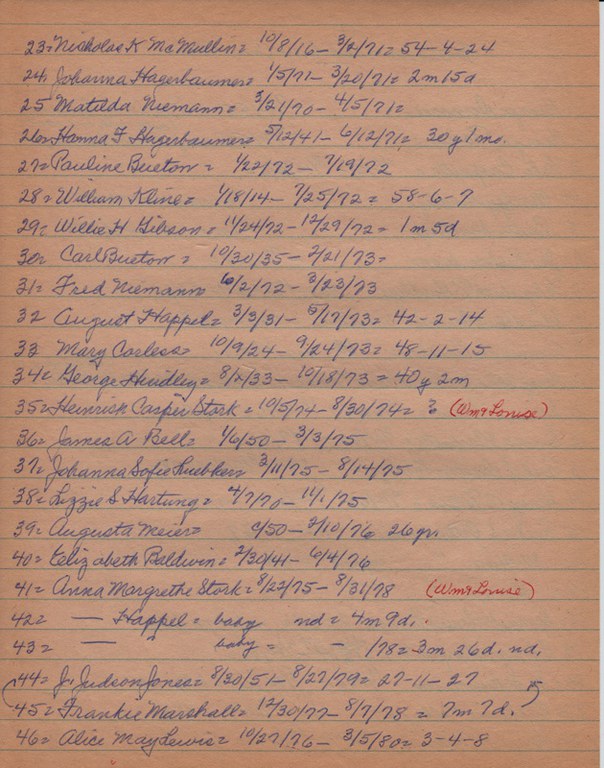 23= Nicholas K McMullin = 10/8/16 - 3/2/71 = 54-4-24
24= Johanna Hagerbaumer = 1/5/71 - 3/20/71 = 2m 15d
25 Matilda Niemann = 3/21/70 - 4/5/71 =
26= Hanna F Hagerbaumer = 5/12/41 - 6/12/71 = 30y 1mo.
27= Pauline Bueton = 1/22/72 - 7/19/72
28= William Kline = 1/18/14 - 7/25/72 = 58-6-7
29= Willie H Gibson = 11/24/72 - 12/29/72 = 1m 5d
30= Carl Bueton = 10/30/35 - 2/21/73 =
31= Fred Niemann = 6/2/72 - 3/23/73
32 August Happel = 3/3/31 - 5/17/73 = 42-2-14
33 Mary Corless = 10/9/24 - 9/24/73 = 48-11-15
34= George Hindley = 8/2/33 - 10/18/73 = 40y 2m
35= Heinrich Casper Stork = 10/5/74 - 8/30/74 = ? (Wm & Louise)
36= James A Bell = 1/6/50 - 3/3/75
37= Johanna Sofie Luebker = 3/11/75 - 8/14/75
38= Lizzie S Hartung = 4/7/70 - 11/1/75
39= Augusta Meier = c/50 - 2/10/76 26 yr.
40= Elizabeth Baldwin = 2/30/41 - 6/4/76
41= Anna Margrethe Stork = 8/22/75 - 8/31/78 (Wm & Louise)
42= — Happel = baby nd = 4m 9d.
43= — " baby = - /78 = 3m 26d. nd.
44= J. Judson Jones = 8/30/51 - 8/27/79 = 27-11-27
45= Frankie Marshall = 12/30/77 - 8/7/78 = 7m 7d.
46= Alice May Lewis = 10/27/76 - 3/5/80 = 3-4-8